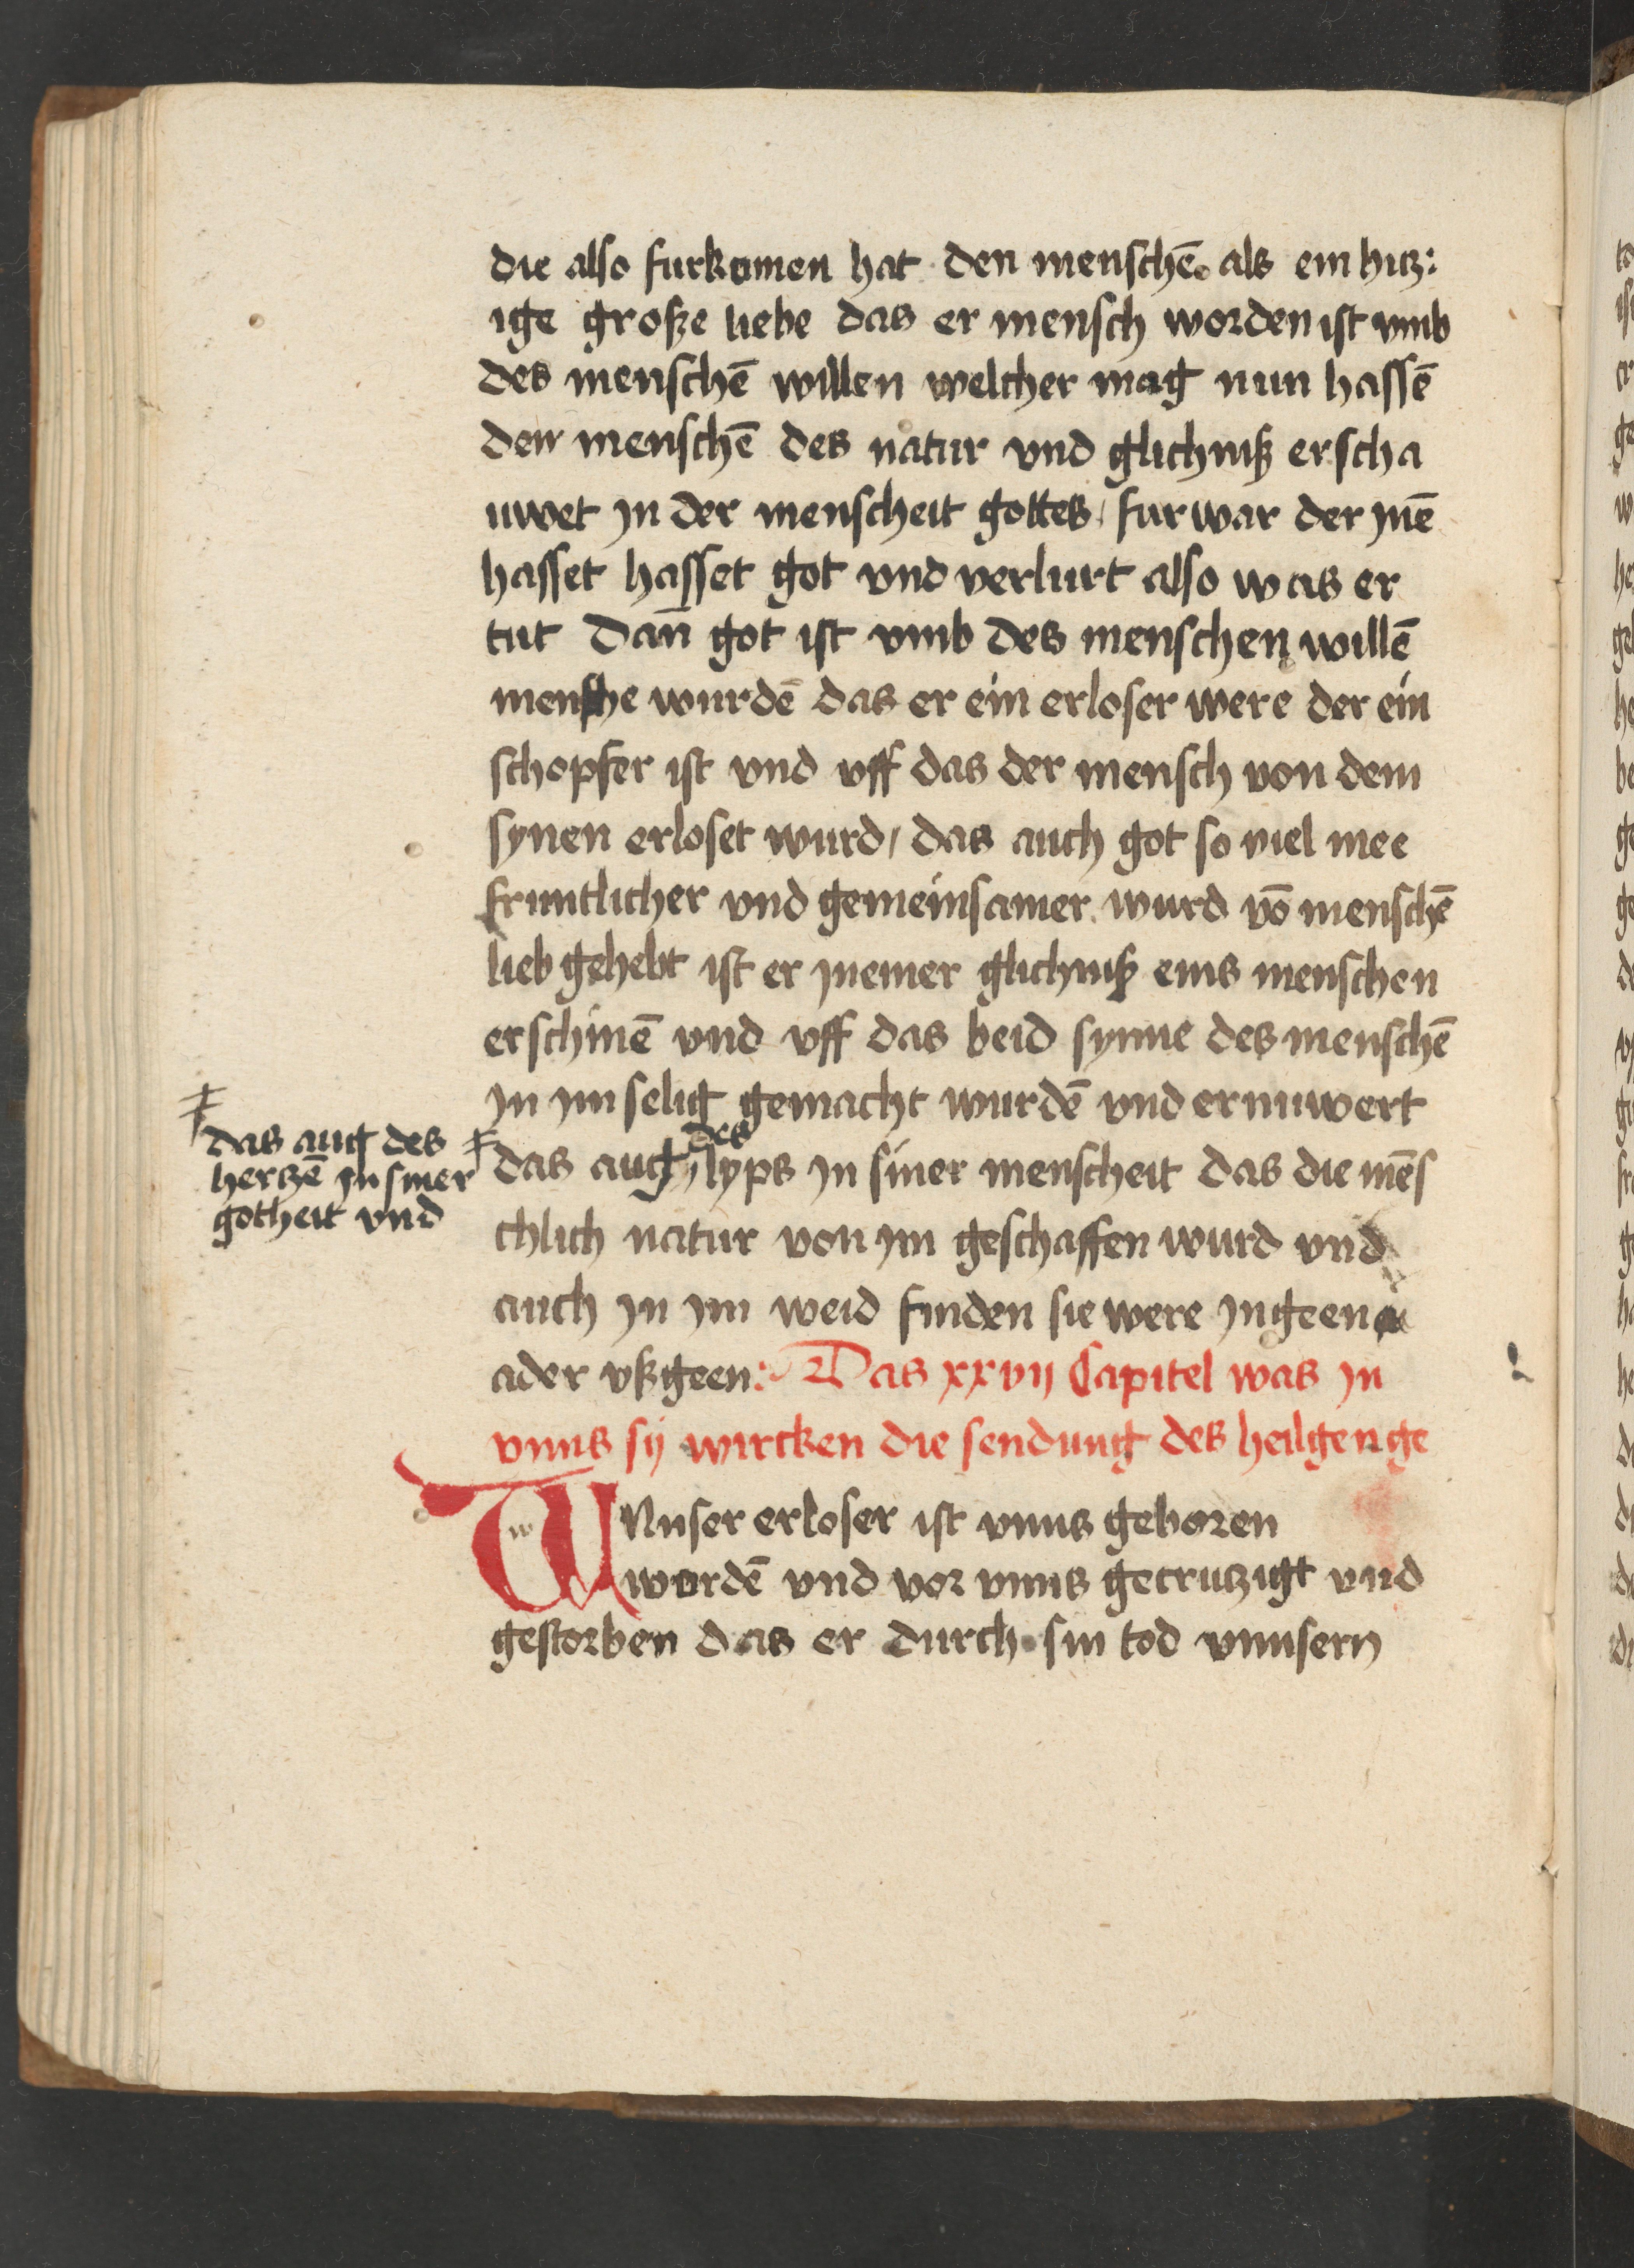 die also furkomen hat den menschē als ein hitz:
ige große liebe das er mensch worden ist vmb
des menschē willen welcher mag nun hassē
den menschē des natur vnd glichniß erscha
uwet jn der menscheit gottes / furwar der jnē
hasset hasset got vnd verlurt also was er
tut Dañ got ist vmb des menschen willē
mensche wurdē das er ein erloser were der ein
schopfer ist vnd vff das der mensch von dem
synen erloset wurd / das auch got so viel mee
fruntlicher vnd gemeinsamer wurd vō menschē
lieb gehebt ist er jn einer glichniß eins menschen
erschinē vnd vff das beid synne des menschē
jn jm selig gemacht wurdē vnd ernuwert
das aug des
hertzē jn siner
gotheit vnd
das aug des lyps jn siner menscheit das die mēs
chlich natur von jm geschaffen wurd vnd
auch jn jm weid finden sie were jngeen
ader vßgeen: Das xxvij Capitel was jn
vnns sij wircken die sendung des heilgen ge
VNnser erloser ist vnns geboren
wordē vnd vor vnns gecrutzigt vnd
gestorben das er durch sin tod vnnsern